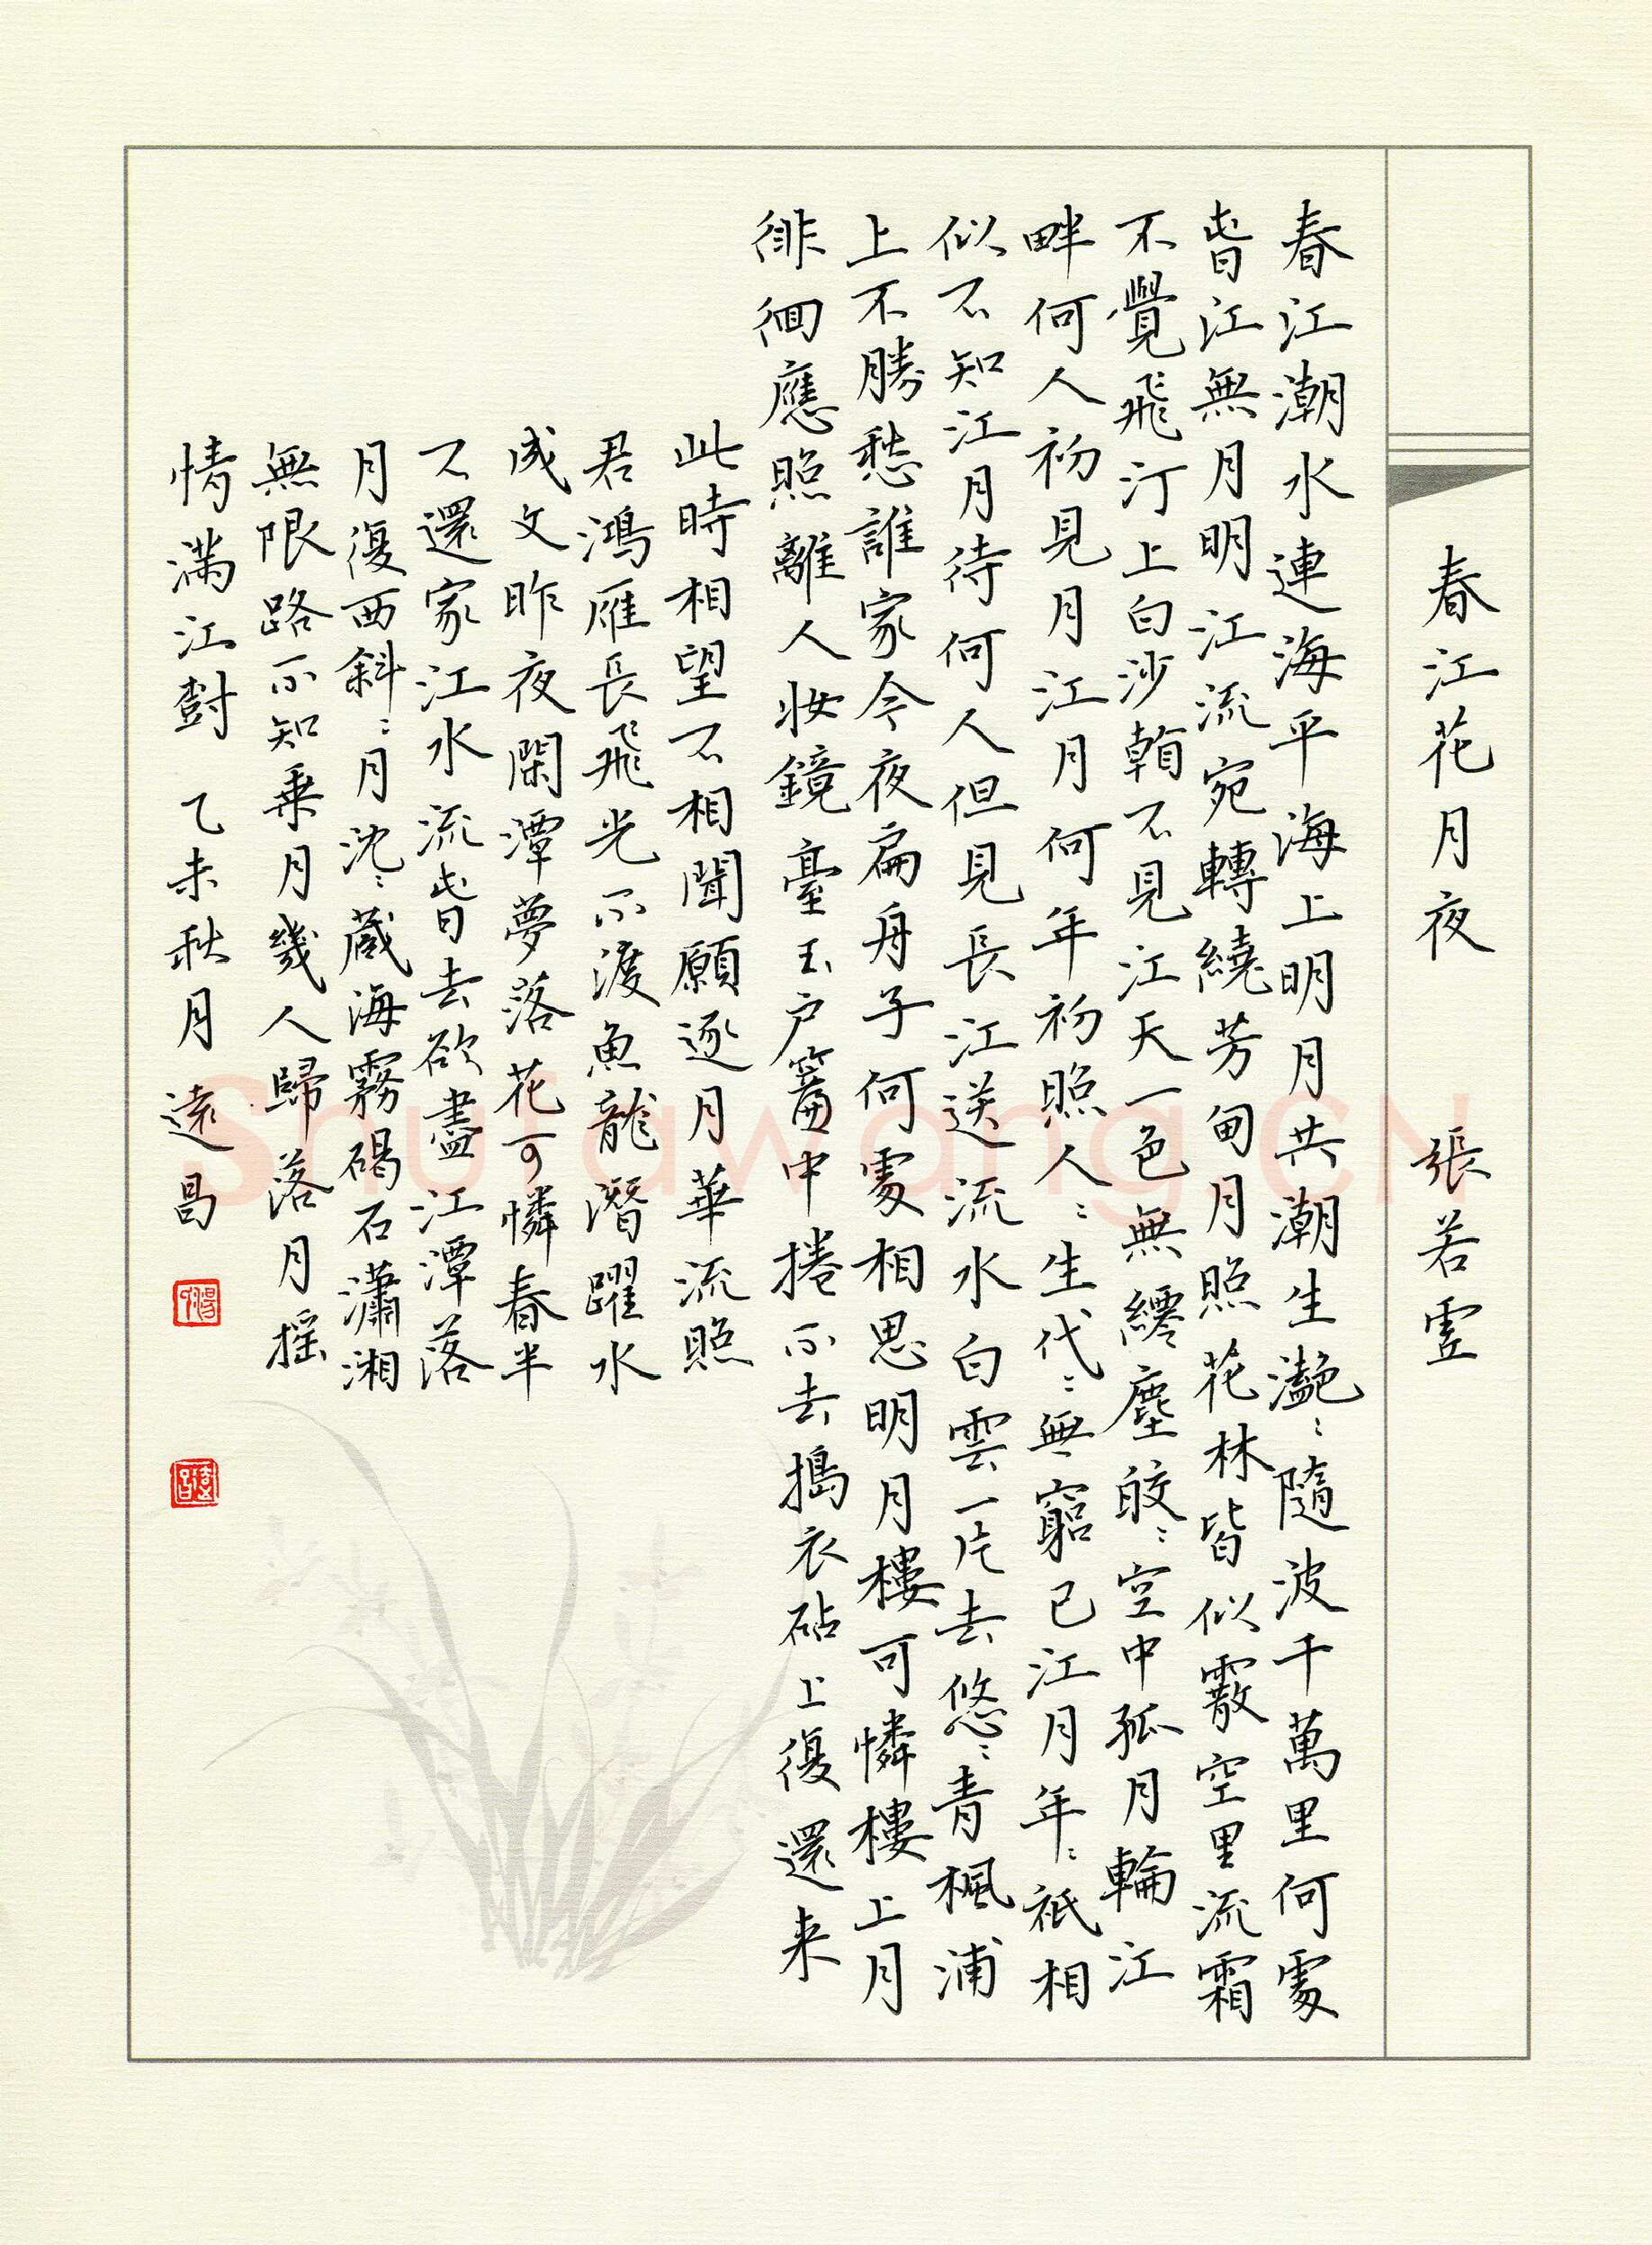 春江花月夜 張若虛
春江潮水連海平海上明月共潮生灧〻隨波千萬里何處
旹江無月明江流宛轉繞芳甸月照花林皆似霰空里流霜
不覺飛汀上白沙䩞不見江天一色無纖塵皎〻空中孤月輪江
畔何人初見月江月何年初照人〻生代〻無窮已江月年〻祇相
似不知江月待何人但見長江送流水白雲一片去悠〻青楓浦
上不勝愁誰家今夜扁舟子何處相思明月樓可憐樓上月
徘徊應照離人妝鏡臺玉户簾中捲不去搗衣砧上復還来
此時相望不相聞願逐月華流照
君鴻雁長飛光不渡魚龍潛躍水
成文昨夜閑潭夢落花可憐春半
不還家江水流旹去欲盡江潭落
月復西斜〻月沈〻蔵海霧碣石瀟湘
無限路不知乘月幾人歸落月摇
情滿江封 乙未秋月 遠昌
Shufawang.CN